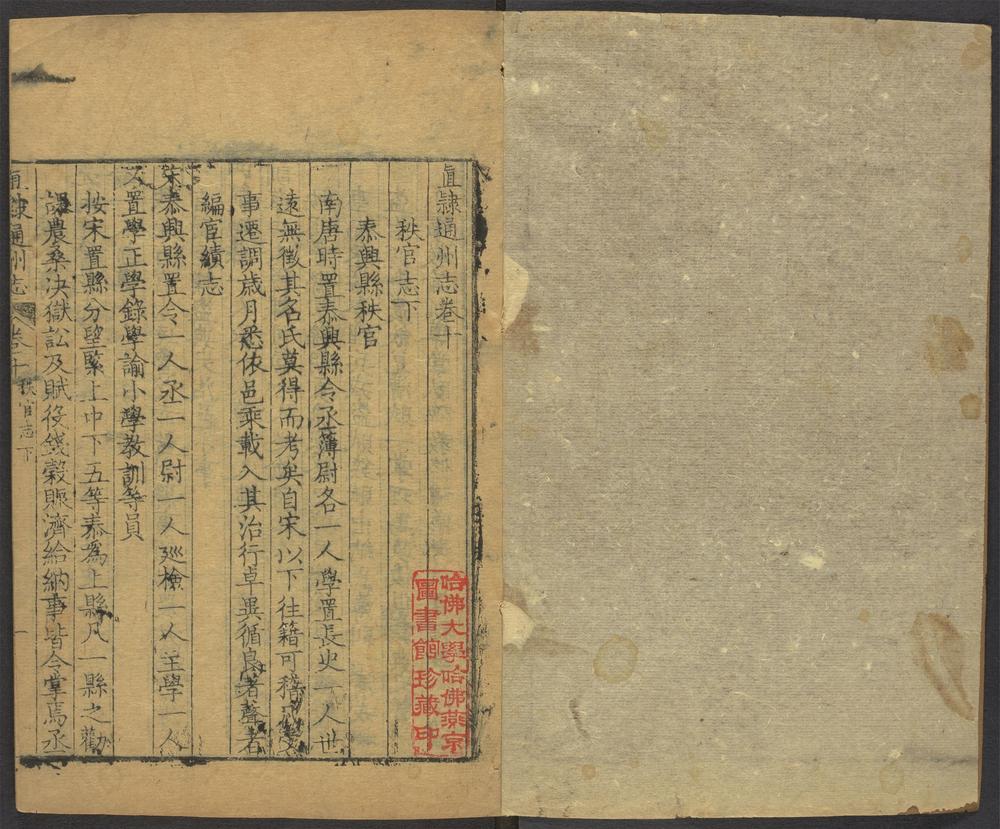 直隸通州志卷十
秩官志下
泰興縣秩官
南唐時置泰興縣令丞簿尉各一人學置長史一人世
遠無徵其名氏莫得而考矣自宋以下往籍可稽凡
事遷調歲月悉依邑乘載入其治行卓異循良著聲者
編官績志
宋泰興縣置令一人丞一人尉一人廵檢一人主學一人
又置學正學錄學諭小學教訓等員
按宋置縣分望緊上中下五等泰為上縣凡一縣之勸
課農桑决獄訟及賦役錢穀賑濟給納事皆令掌焉丞
直隸通州志 卷十 秩官志下 一
哈佛大學哈佛燕京
圖書館珍藏印